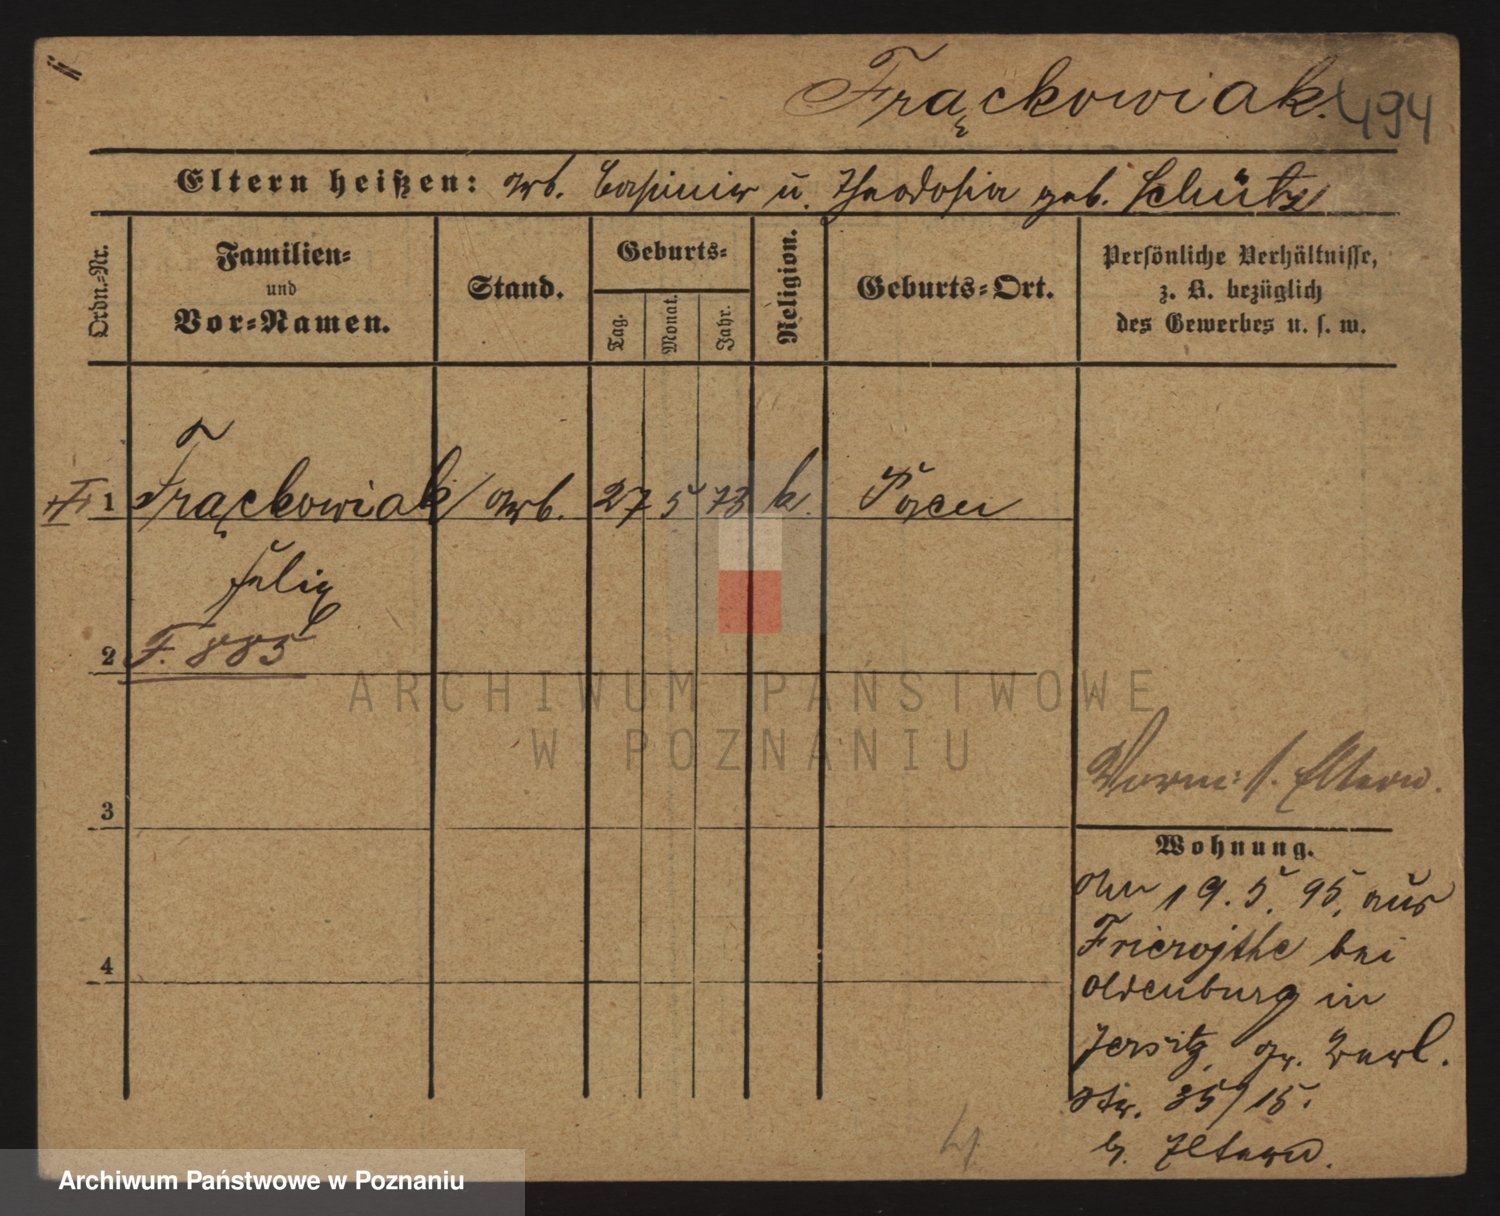 Frąckowiak. 494
Eltern heißen: Arb. Casimir u. Theodosia geb. Schütz
Ordn.-Nr.
Familien-
und
Vor-Namen.
Stand.
Geburts-
Tag.
Monat.
Jahr.
Religion.
Geburts-Ort.
Persönliche Verhältnisse,
z. B. bezüglich
des Gewerbes u. s. w.
1 Frąckowiak Arb. 27 5 73 k. Posen
Felix
2 F. 885
3
4
Vorm: s. Eltern.
Wohnung.
Am 19. 5. 95. aus
Friesoythe bei
Oldenburg in
Jersitz, Gr. Berl.
Str. 35/15.
b. Eltern.
ARCHIWUM PAŃSTWOWE
W POZNANIU
Archiwum Państwowe w Poznaniu